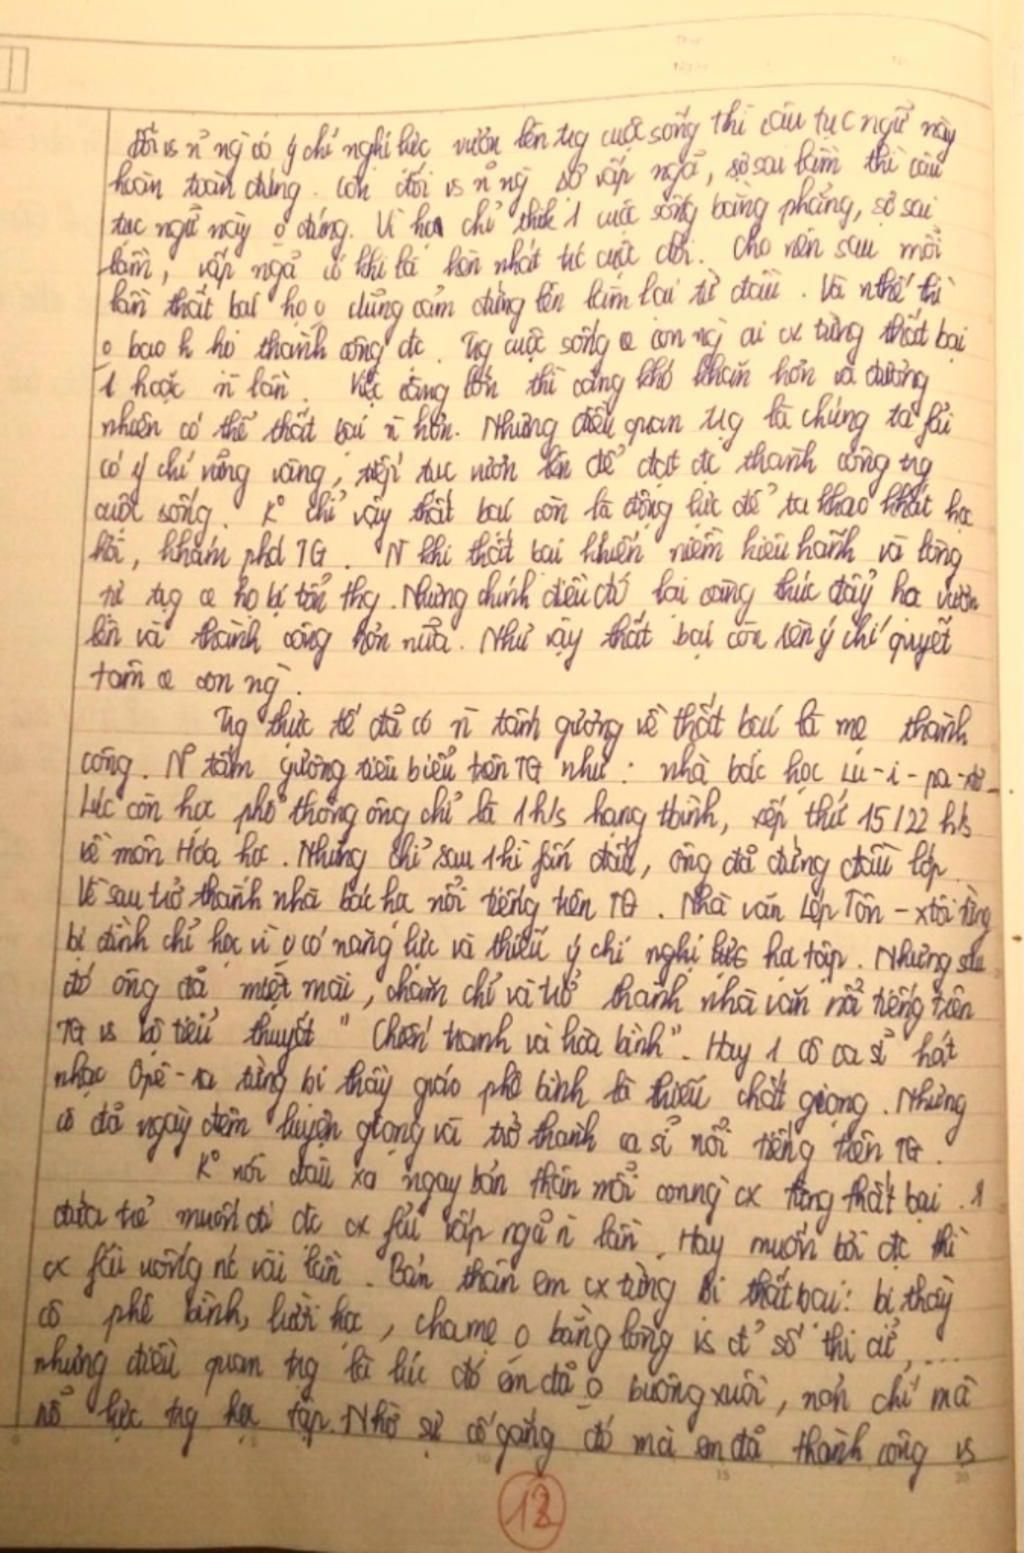 Đối vs n ng có ý chí nghị lực vươn lên tg cuộc sống thì câu tục ngữ này
hoàn toàn đúng. Còn đối vs n ng sợ vấp ngã, sợ sai lầm thì câu
tục ngữ này o đúng. Vì họ chỉ thik 1 cuộc sống bằng phẳng, sợ sai
lầm, vấp ngã có khi là hèn nhát từ cuộc đời. Cho nên sau mỗi
lần thất bại họ o dũng cảm đứng lên làm lại từ đầu. Và nthế thì
o bao h họ thành công đc. Tg cuộc sống ​con ng ai cx từng thất bại
1 hoặc n lần. Việc càng lớn thì càng khó khăn hơn và đương
nhiên có thể thất bại n hơn. Nhưng điều quan tṛg là chúng ta fải
có ý chí vững vàng, tiếp tục vươn lên để đạt đc thành công tg
cuộc sống. K° chỉ vậy thất bại còn là động lực để ta khao khát học
hỏi, khám phá TG. N khi thất bại khiến niềm kiêu hãnh và lòng
tự tṛg họ bị tổn thg. Nhưng chính điều đó lại càng thúc đẩy họ vươn
lên và thành công hơn nữa. Như vậy thất bại còn rèn ý chí quyết
tâm con ng.
Tg thực tế đã có n tấm gương về thất bại là mẹ thành
công. N tấm gương tiêu biểu trên TG như: nhà bác học Lu-i-pa-xtơ
Lúc còn học phổ thông ông chỉ là 1 h/s hạng tbình, xếp thứ 15/22 h/s
về môn Hóa học. Nhưng chỉ sau 1 hì fấn đấu, ông đã đứng đầu lớp.
Về sau trở thành nhà bác học nổi tiếng trên TG. Nhà văn Lép Tôn-xtôi từng
bị đình chỉ học vì o có năng lực và thiếu ý chí nghị lực học tập. Nhưng sau
đó ông đã miệt mài, chăm chỉ và trở thành nhà văn nổi tiếng trên
TG vs bộ tiểu thuyết "Chiến tranh và hòa bình". Hay 1 cô ca sĩ hát
nhạc Ôpê-ra từng bị thầy giáo phê bình là thiếu chất giọng. Nhưng
cô đã ngày đêm luyện giọng và trở thành ca sĩ nổi tiếng trên TG.
K° nói đâu xa ngay bản thân mỗi con ng cx từng thất bại. 1
đứa trẻ muốn đi đc cx fải vấp ngã n lần. Hay muốn bơi đc thì
cx fải uống nc vài lần. Bản thân em cx từng bị thất bại: bị thầy
cô phê bình, lười học, cha mẹ o bằng lòng vs đ' số thi cử,....
nhưng điều quan tṛg là lúc đó em đã o buông xuôi, nản chí mà
nỗ lực tg học tập. Nhờ sự cố gắng đó mà em đã thành công vs
12